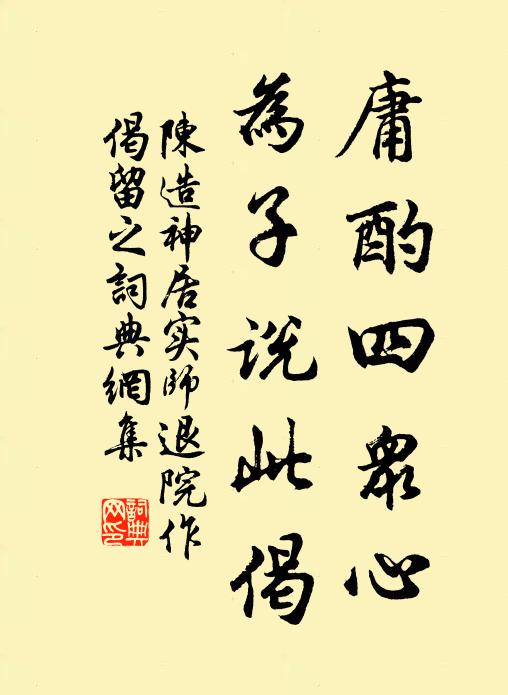 庸酌四衆心
為子説此偈
陳造神居实師退院作
偈留之詞典網集
詞典网印